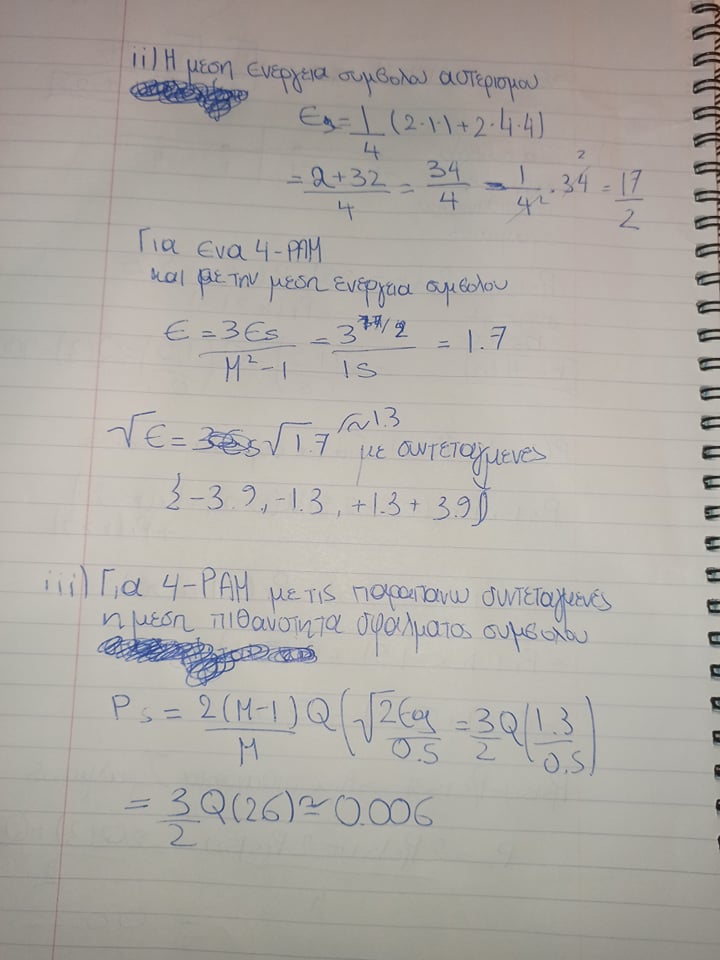 ii) Η μεση ενεργεια συμβολου αστερισμου
Es = 1/4 (2·1·1 + 2·4·4)
= 2+32/4 = 34/4 = 1/4² · 34² = 17/2
Για ενα 4-PAM
και με την μεση ενεργεια συμβολου
ε = 3Es/M²-1 = 3 17/2/15 = 1.7
√ε = √1.7 ≈1.3 με συντεταγμενες
{-3.9, -1.3, +1.3 + 3.9}
iii) Για 4-PAM με τις παραπανω συντεταγμενες
η μεση πιθανοτητα σφαλματος συμβολου
Ps = 2(M-1)/M Q(√2Eg/0.5 = 3/2 Q(1.3/0.5)
= 3/2 Q(26) ≃ 0.006